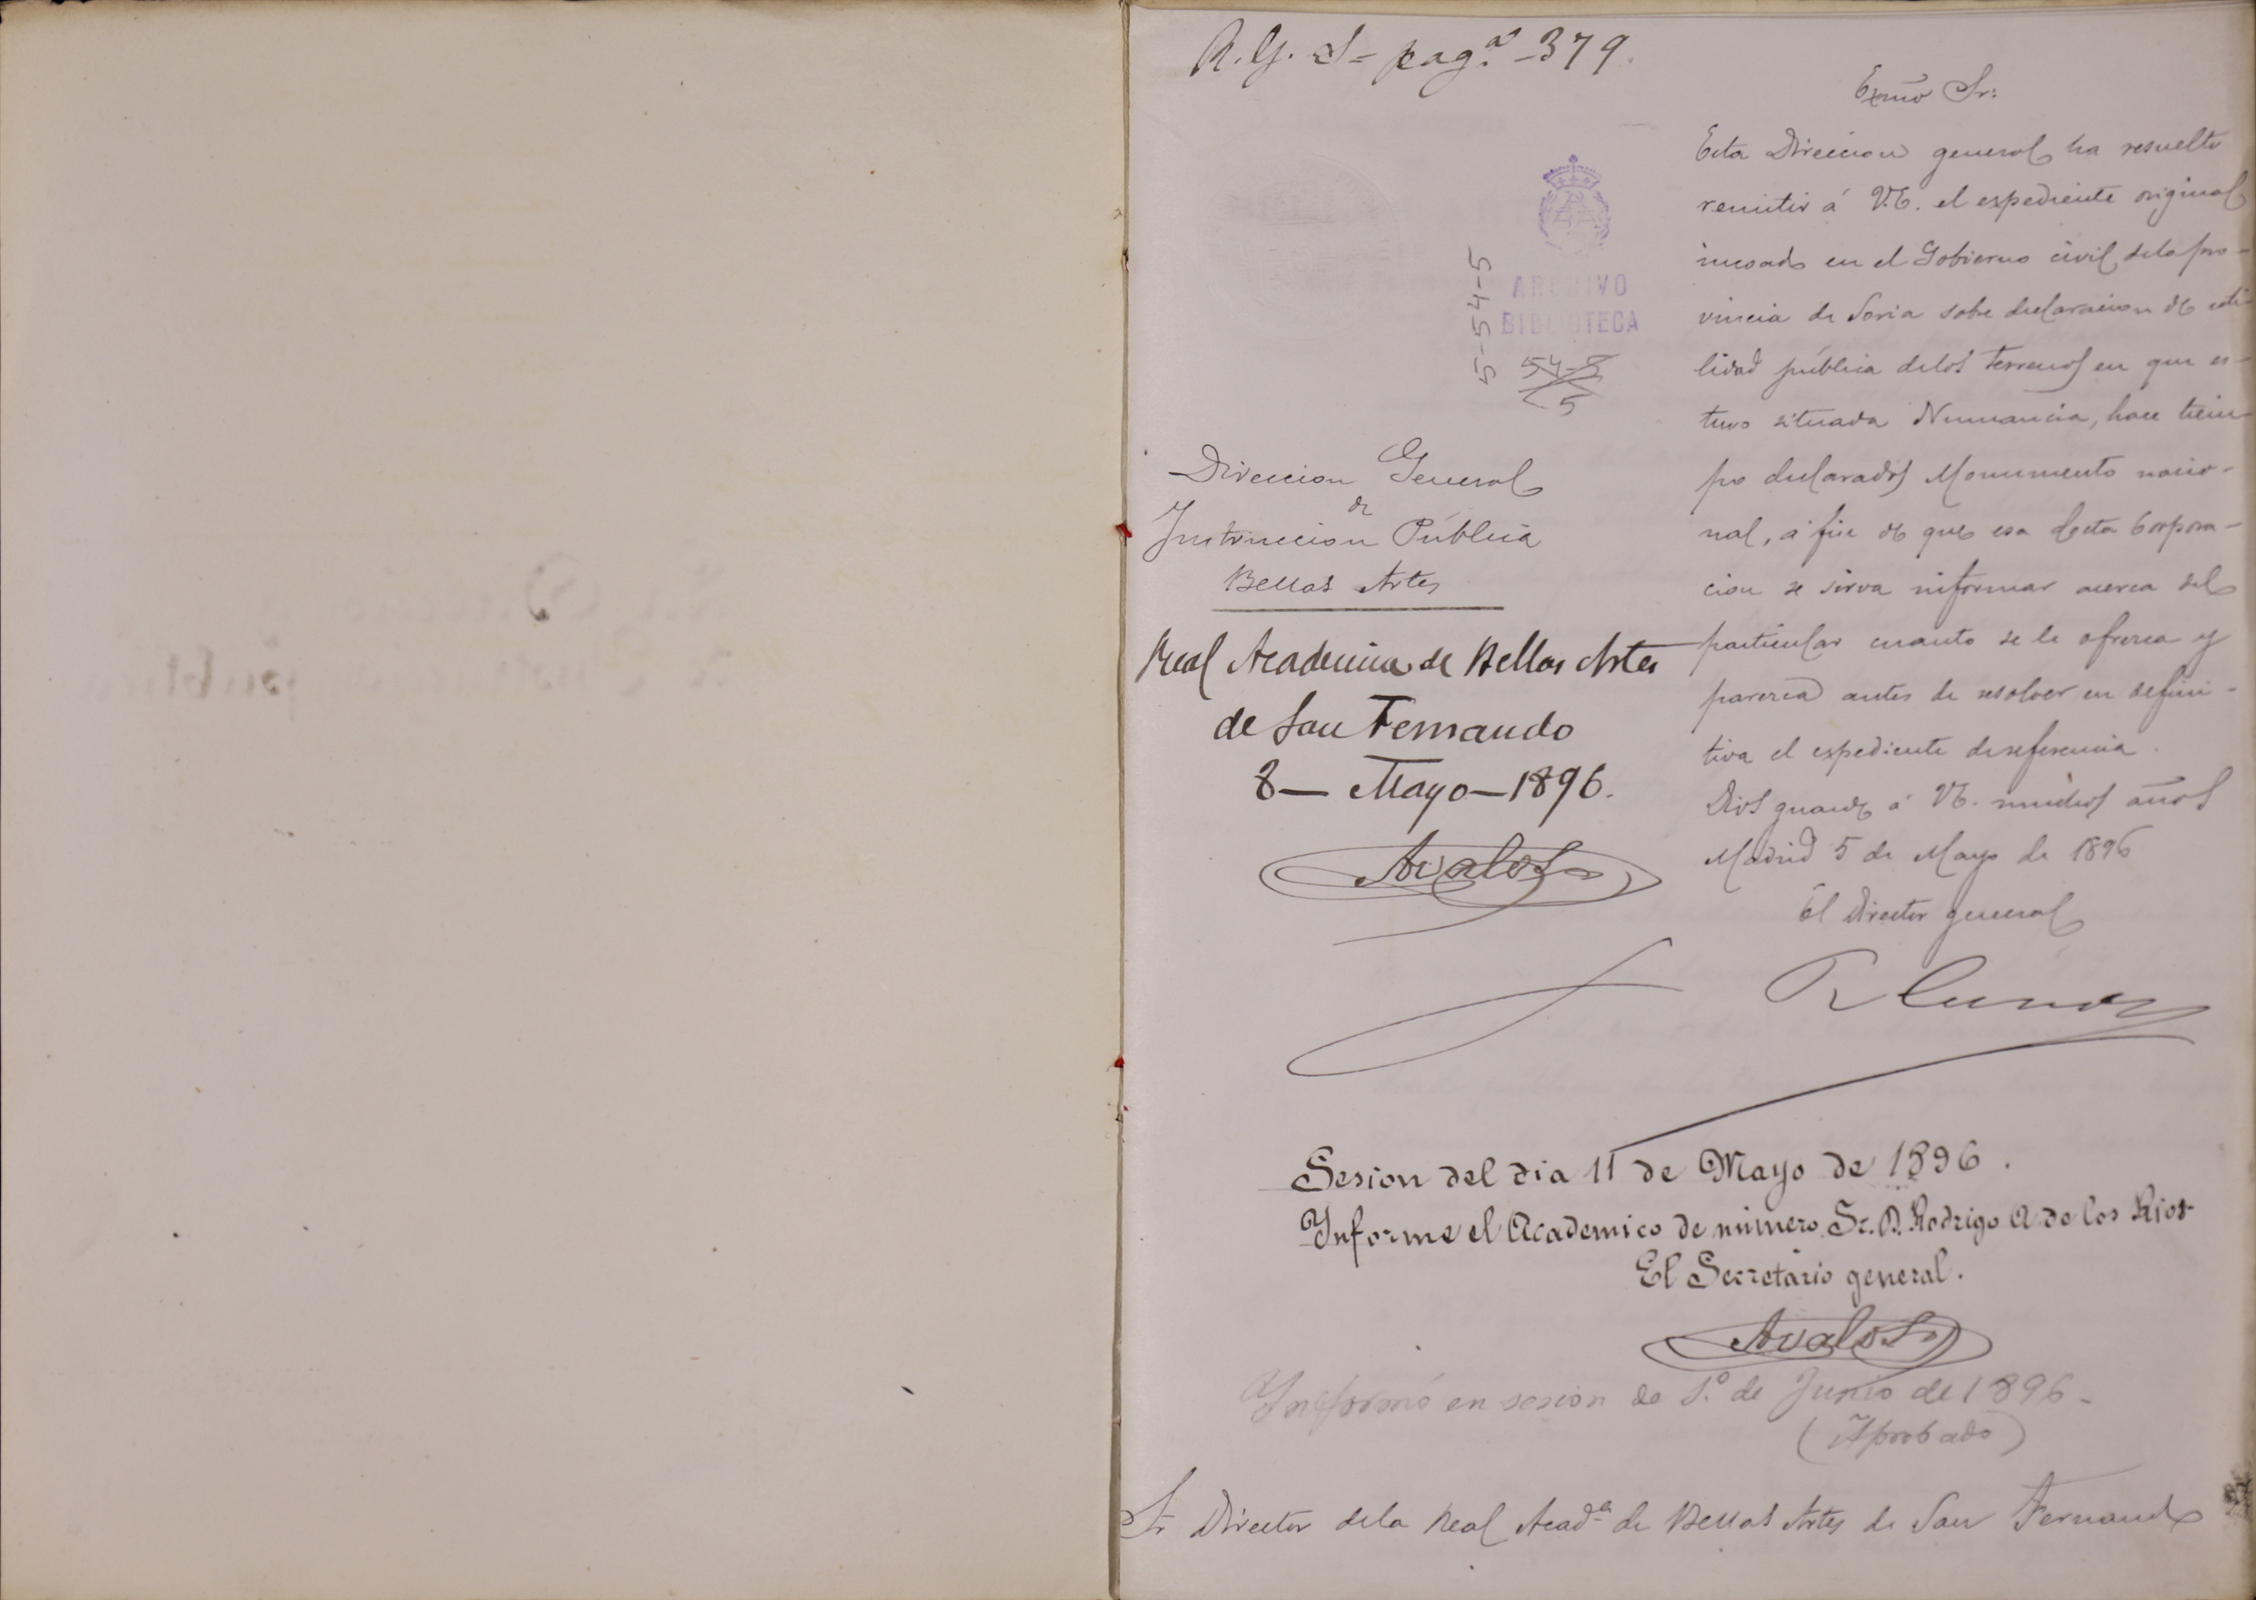 R. G. S= pag.ª -379.
ARCHIVO
BIBLIOTECA
5-54-5
54-8
5
Direccion General
de
Instruccion Pública
Bellas Artes
Real Academia de Bellas Artes
de San Fernando
8— Mayo—1896.
Avalos
Exmo Sr:
Esta Direccion general ha resuelto
remitir á V.E. el espediente original
incoado en el Gobierno civil de la pro-
vincia de Soria sobre declaracion de uti-
lidad pública de los terrenos en que es-
tuvo situada Numancia, hace tiem-
po declarados Monumento nacio-
nal, á fin de que esa docta Corpora-
cion se sirva informar acerca del
particular cuanto se le ofrezca y
parezca antes de resolver en defini-
tiva el espediente de referencia.
Dios guarde á VE. muchos años
Madrid 5 de Mayo de 1896
El Director general
Sesion del dia 11 de Mayo de 1896.
Informe el Academico de número Sr. D. Rodrigo A. de los Rios
El Secretario general.
Avalos
Informó en sesion de 1.º de Junio de 1896-
(Aprobado)
Sr Director de la Real Acad.ª de Bellas Artes de San Fernando